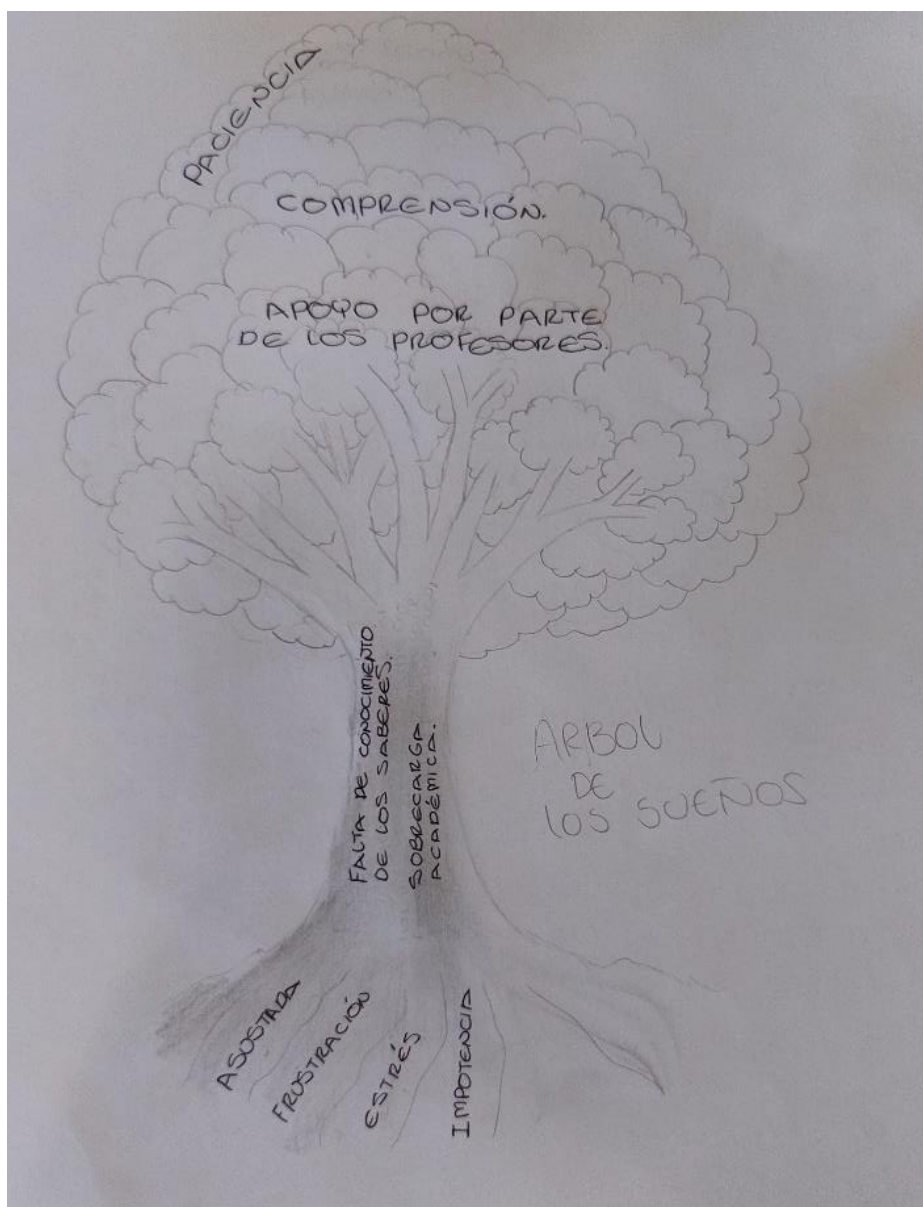 PACIENCIA
COMPRENSIÓN.
APOYO POR PARTE
DE LOS PROFESORES.
FALTA DE CONOCIMIENTO
DE LOS SABERES.
SOBRECARGA
ACADÉMICA.
ARBOL
DE
LOS SUEÑOS
ASUSTADA
FRUSTRACIÓN
ESTRÉS
IMPOTENCIA